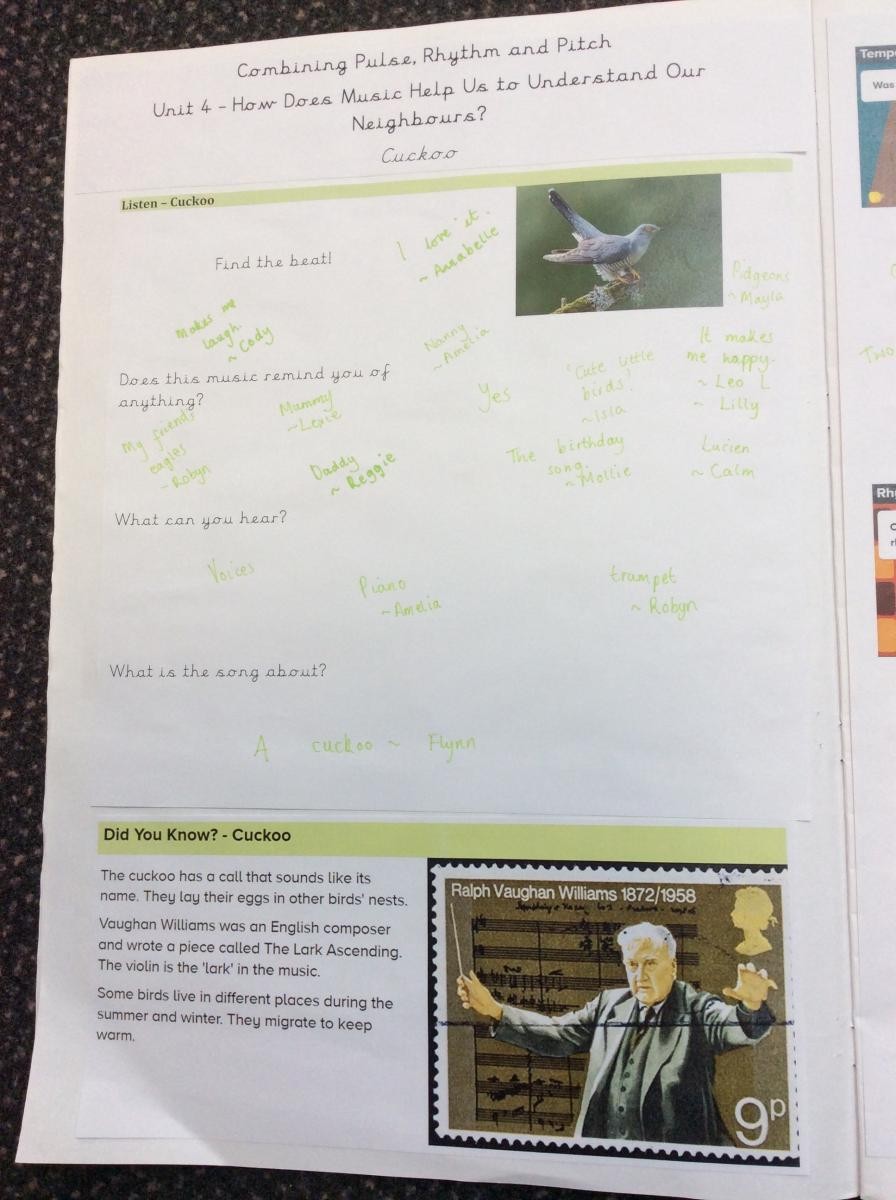 Combining Pulse, Rhythm and Pitch
Unit 4 - How Does Music Help Us to Understand Our
Neighbours?
Cuckoo
Listen – Cuckoo
Find the beat!
I love it.
~ Annabelle
Pidgeons
~ Mayla
Makes me
laugh.
~ Cody
Nanny
~ Amelia
It makes
me happy.
~ Leo L
~ Lilly
Does this music remind you of
anything?
Mummy
~ Lexie
Yes
'Cute little
birds!'
~ Isla
My friends
eagles
~ Robyn
Daddy
~ Reggie
The birthday
song.
~ Mollie
Lucien
~ Calm
What can you hear?
Voices
Piano
~ Amelia
trumpet
~ Robyn
What is the song about?
A cuckoo ~ Flynn
Did You Know? - Cuckoo
The cuckoo has a call that sounds like its
name. They lay their eggs in other birds' nests.
Vaughan Williams was an English composer
and wrote a piece called The Lark Ascending.
The violin is the 'lark' in the music.
Some birds live in different places during the
summer and winter. They migrate to keep
warm.
Ralph Vaughan Williams 1872/1958
9p
Temp
Was
Two
Rh